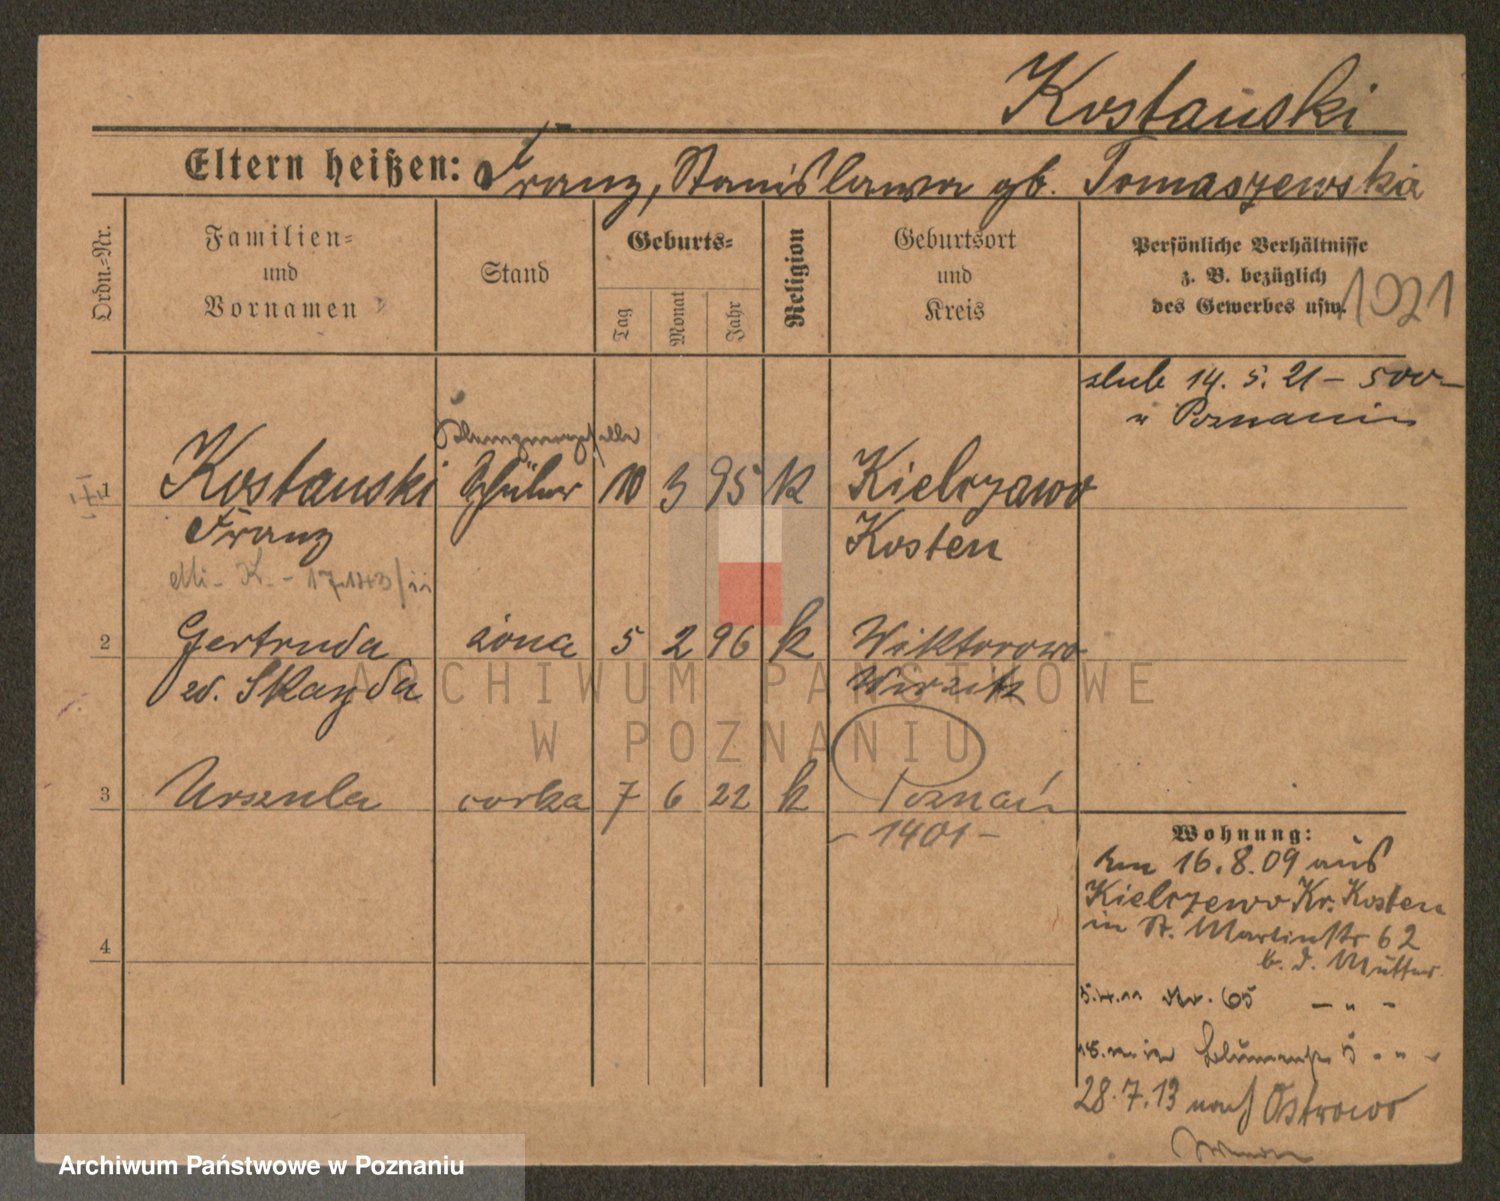 Kostański
Eltern heißen: Franz, Stanislawa gb. Tomaszewska
Ordn.-Nr.
Familien-
und
Vornamen
Stand
Geburts-
Tag
Monat
Jahr
Religion
Geburtsort
und
Kreis
Persönliche Verhältnisse
z. B. bezüglich
des Gewerbes usw.
1921
ślub 14. 5. 21 - 500-
w Poznaniu
1 Kostanski Schüler 10 3 95 k Kielczewo
Franz Kosten
2 Gertruda żona 5 2 96 k Wiktorowo
z d. Skazyda Wirsitz
3 Urszula córka 7 6 22 k Poznań
- 1401 -
4
Wohnung:
Am 16. 8. 09 aus
Kielczewo Kr. Kosten
in St. Martinstr 62
b. d. Mutter
Nr. 65 - " -
Blumenstr 5 - " -
28. 7. 13 nach Ostrowo
ARCHIWUM PAŃSTWOWE
W POZNANIU
Archiwum Państwowe w Poznaniu